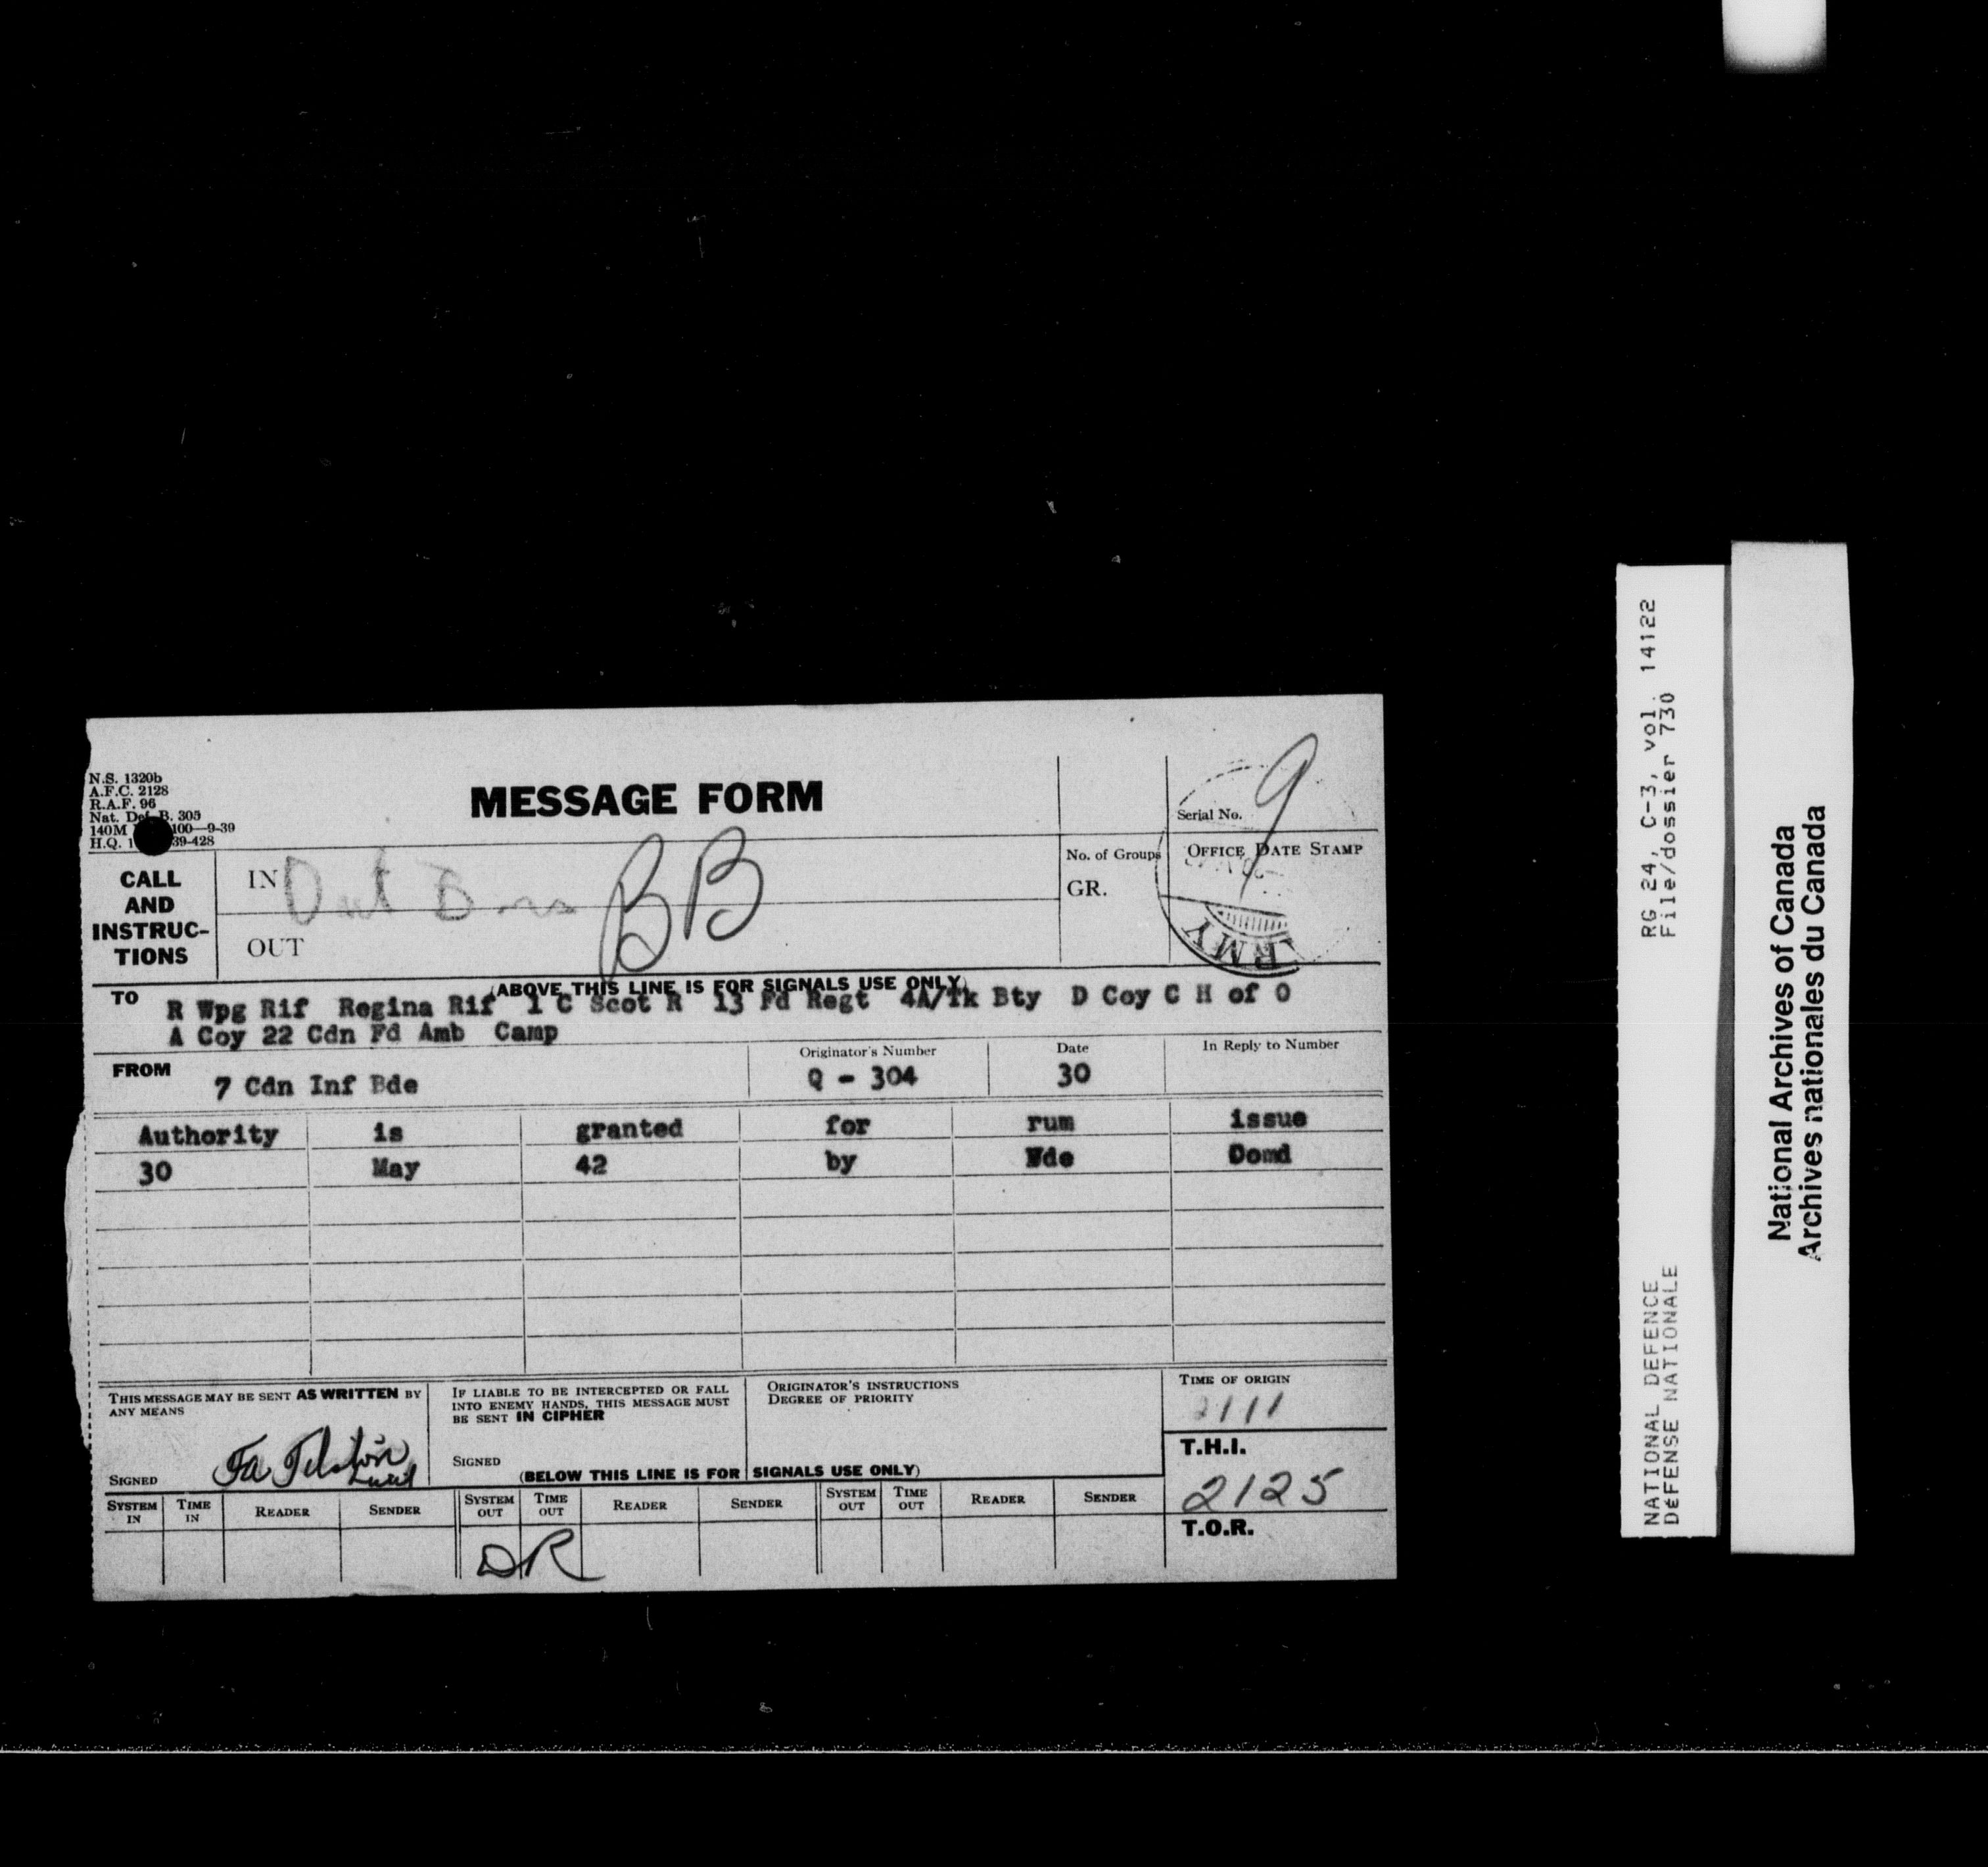 N.S. 1320b
A.F.C. 2128
R.A.F. 96
Nat. Def. B. 305
140M 100—9-39
H.Q. 1 39-428
MESSAGE FORM
Serial No. 9
CALL
AND
INSTRUC-
TIONS
IN
OUT
BB
No. of Groups
GR.
OFFICE DATE STAMP
RMY
(ABOVE THIS LINE IS FOR SIGNALS USE ONLY)
TO
R Wpg Rif Regina Rif 1 C Scot R 13 Fd Regt 4A/Tk Bty D Coy C H of O
A Coy 22 Cdn Fd Amb Camp
FROM
7 Cdn Inf Bde
Originator's Number
Q - 304
Date
30
In Reply to Number
Authority is granted for rum issue
30 May 42 by Bde Comd
THIS MESSAGE MAY BE SENT AS WRITTEN BY
ANY MEANS
SIGNED
IF LIABLE TO BE INTERCEPTED OR FALL
INTO ENEMY HANDS, THIS MESSAGE MUST
BE SENT IN CIPHER
SIGNED
ORIGINATOR'S INSTRUCTIONS
DEGREE OF PRIORITY
TIME OF ORIGIN
2111
T.H.I.
2125
T.O.R.
(BELOW THIS LINE IS FOR SIGNALS USE ONLY)
SYSTEM IN TIME IN READER SENDER SYSTEM OUT TIME OUT READER SENDER SYSTEM OUT TIME OUT READER SENDER
DR
RG 24, C-3, vol. 14122
File/dossier 730
NATIONAL DEFENCE
DEFENSE NATIONALE
National Archives of Canada
Archives nationales du Canada